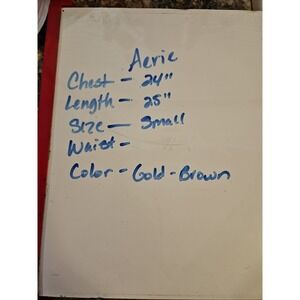 Aerie
Chest - 24"
Length - 25"
Size - Small
Waist -
Color - Gold-Brown